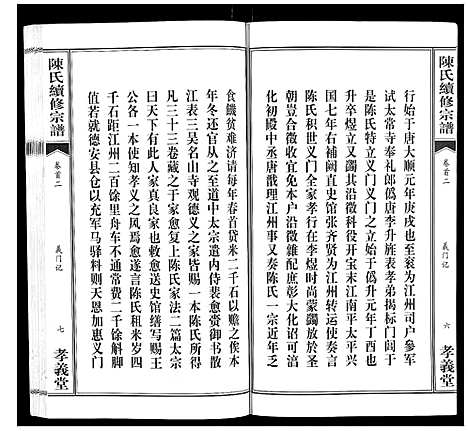 陳氏續修宗譜
卷首二
義门记
六
孝義堂
行始于唐大顺元年庚戌也至衮为江州司户參军
试太常寺奉礼郎僞唐李升旌表孝弟揭标门闾于
是陈氏特立义门义门之立始于僞升元年丁酉也
升卒煜立又蠲其沿徵科役开宝末江南平太平兴
国七年右補阙直史馆张齐贤为江州转运使奏言
陈氏积世义门全家孝行在李煜时尚蒙蠲放於圣
朝豈合徵收宪免本户沿徵雜配庶彰大化诏可淳
化初殿中丞唐戬理江州事又奏陈氏一宗近年乏
食饑贫难济请每年春首贷米二千石以赡之俟本
年冬还官从之至道中太宗遣内侍裴愈賫御书散
江表三吴名山寺观德义之家皆赐一本陈氏所得
凡三十三卷藏之于家愈复上陈氏家法二篇太宗
曰天下有此人家真良家也敕愈送史馆缮写赐王
公各一本使知孝义之风焉愈遂言陈氏租米岁四
千石距江州二百馀里舟车不通常费二千馀觧脚
值若就德安县仓以充军马驿料则天恩加惠义门
陳氏續修宗譜
卷首二
義门记
七
孝義堂